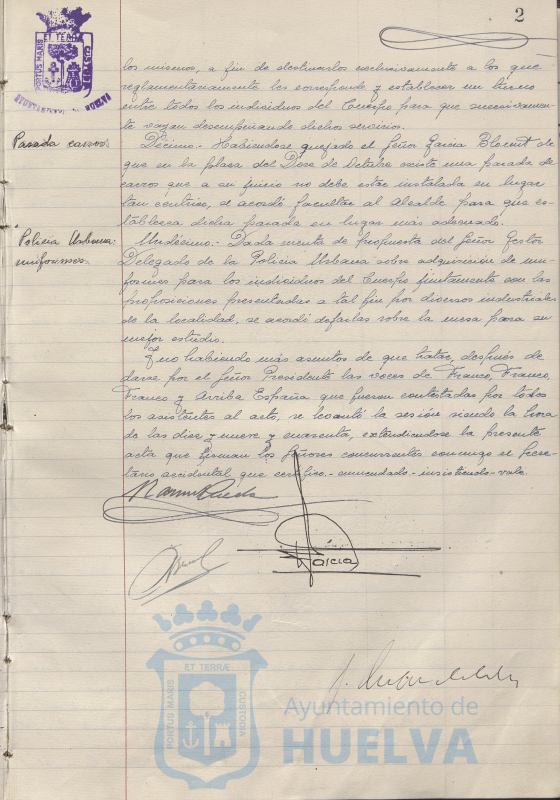 2
PORTUS MARIS
ET TERRÆ
CUSTODIA
AYUNTAMIENTO HUELVA
los mismos, a fin de destinarlos exclusivamente a los que
reglamentariamente les corresponde y establecer un turno
entre todos los individuos del Cuerpo para que sucesivamen-
te vayan desempeñando dichos servicios.
Parada carros.
Décimo.- Habiéndose quejado el Señor Garcia de
que en la plaza del Doce de Octubre existe una parada de
carros que a su juicio no debe estar instalada en lugar
tan céntrico, se acordó facultar al Alcalde para que es-
tablezca dicha parada en lugar más adecuado.
Policia Urbana:
uniformes.
Undécimo.- Dada cuenta de propuesta del Señor Gestor
Delegado de la Policia Urbana sobre adquisición de uni-
formes para los individuos del Cuerpo juntamente con las
proposiciones presentadas a tal fin por diversos industriales
de la localidad, se acordó dejarlas sobre la mesa para su
mejor estudio.
Y no habiendo más asuntos de que tratar, después de
darse por el Señor Presidente las voces de Franco, Franco,
Franco y Arriba España que fueron contestadas por todos
los asistentes al acto, se levantó la sesión siendo la hora
de las diez y nueve y cuarenta, extendiéndose la presente
acta que firman los Señores concurrentes conmigo el Secre-
tario accidental que certifico.- enmendado - insistiendo - vale.
García
PORTUS MARIS
ET TERRÆ
CUSTODIA
Ayuntamiento de
HUELVA